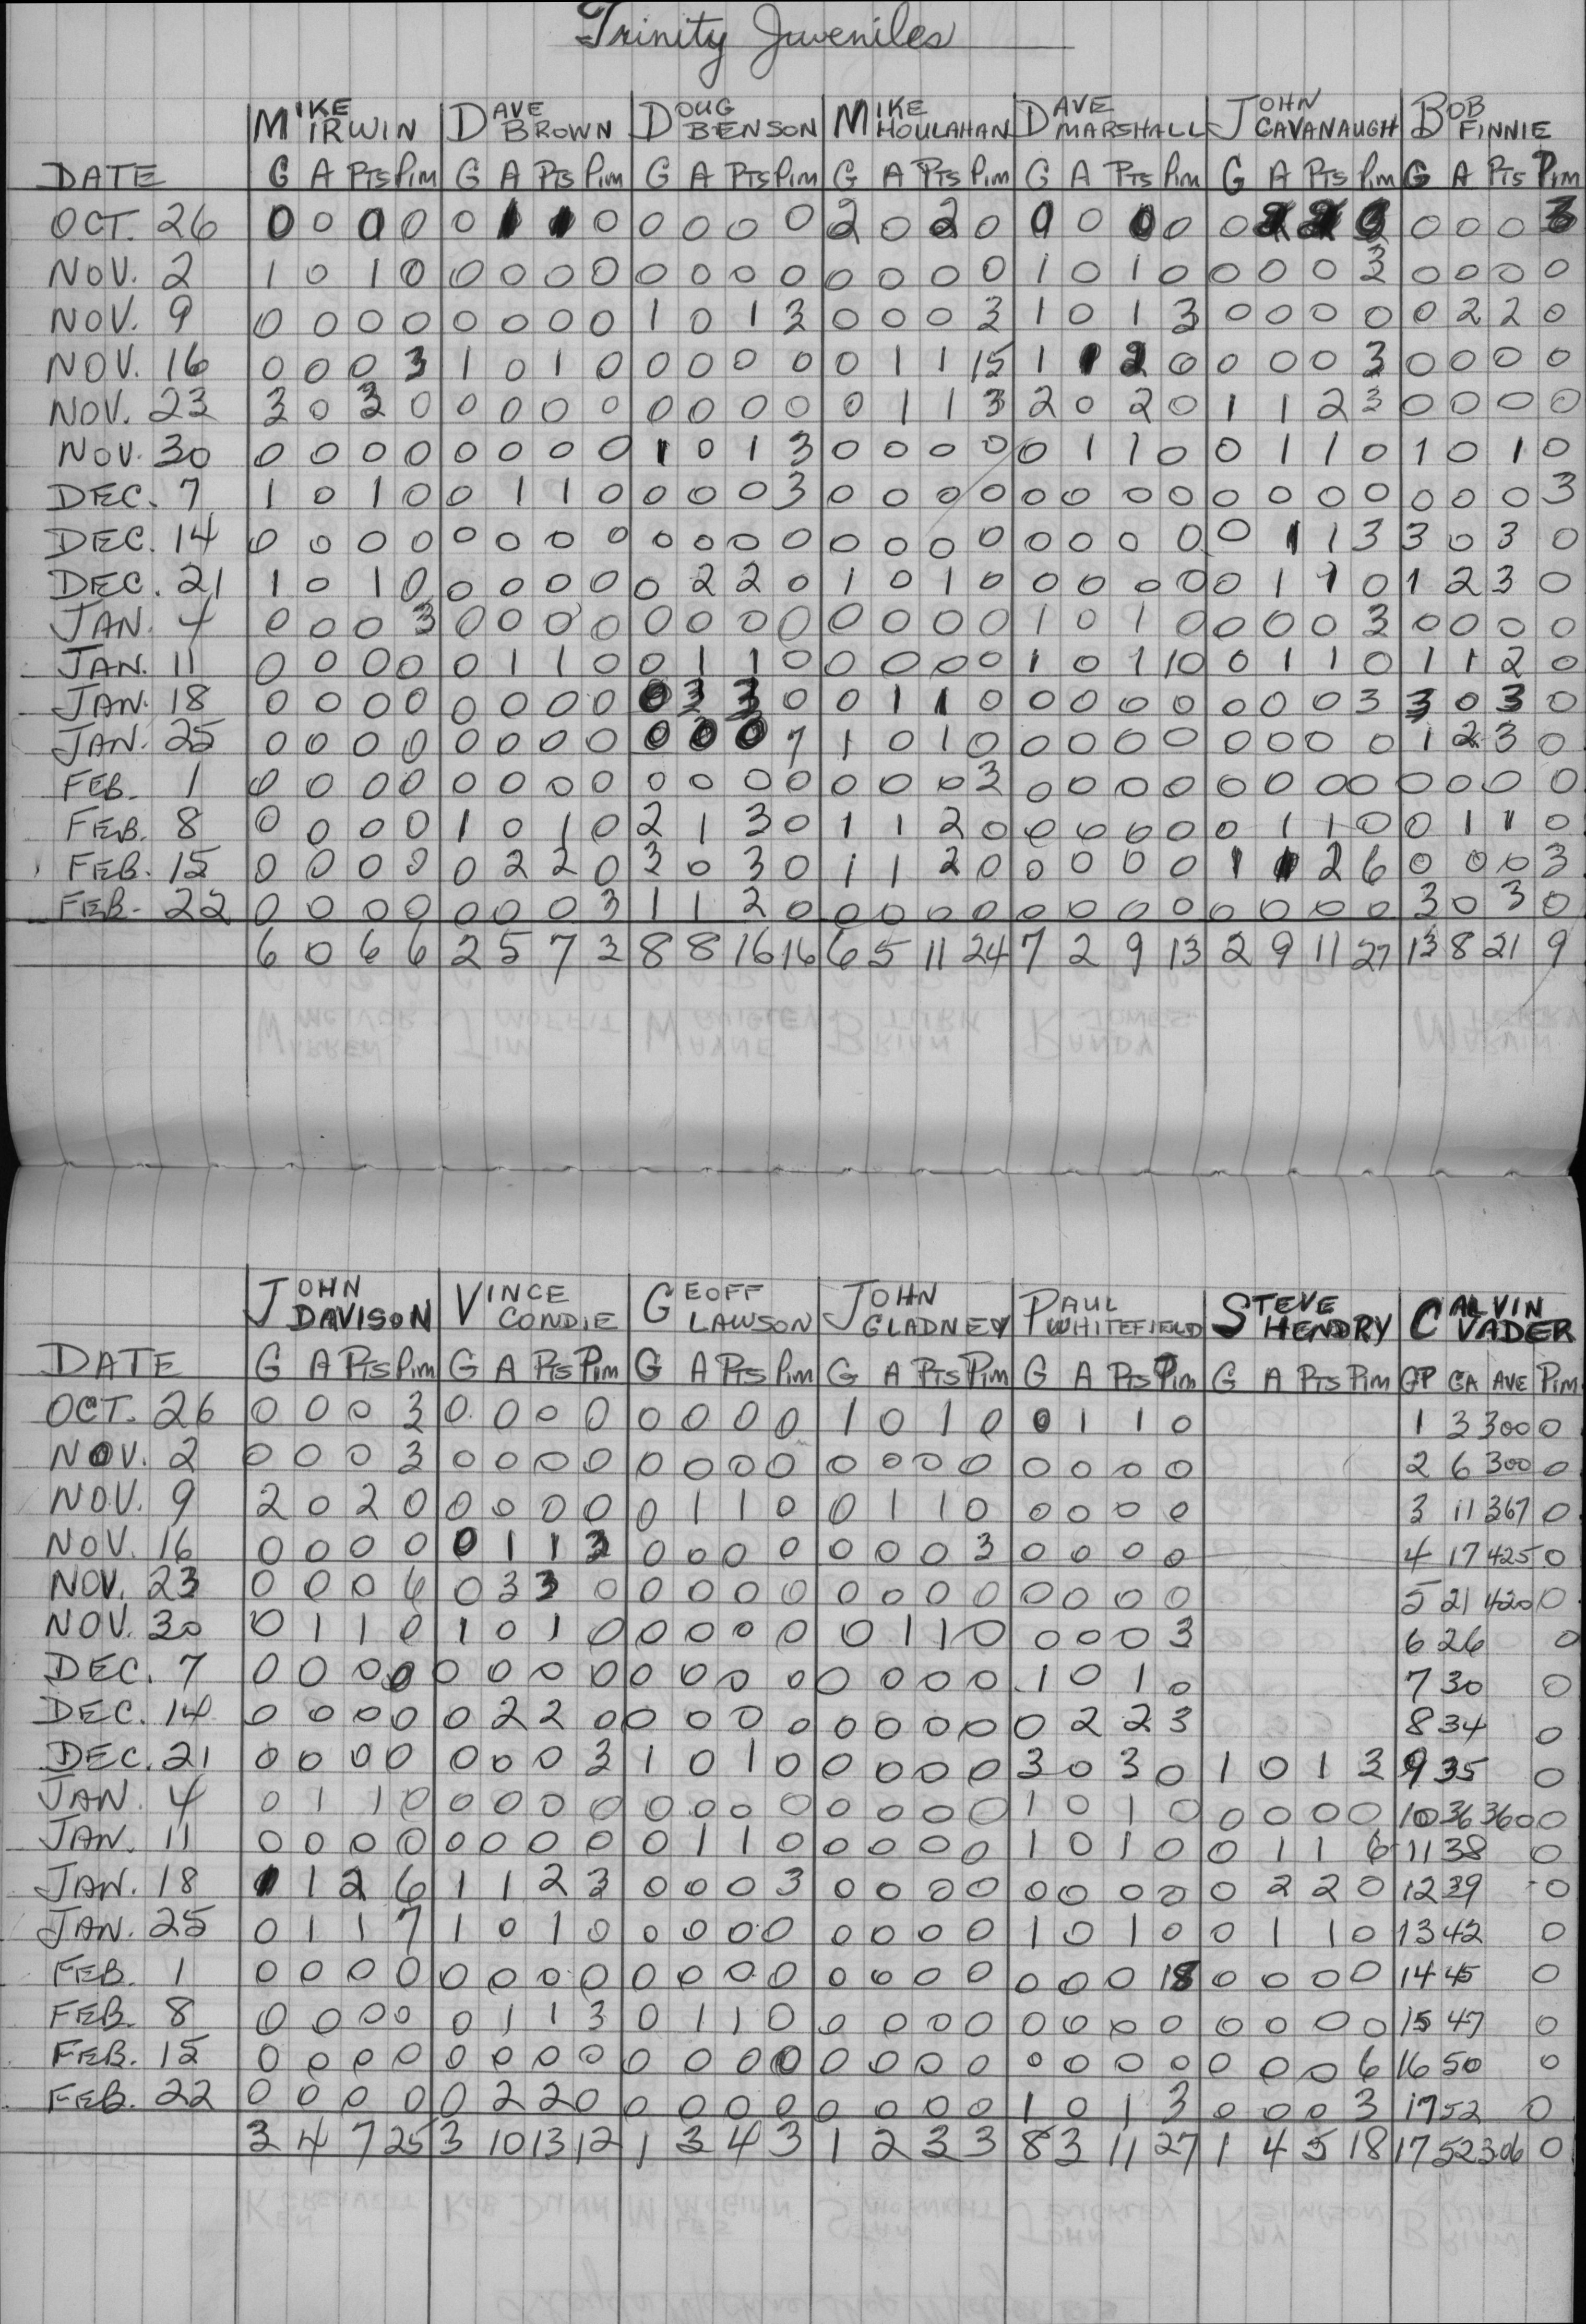 Trinity Juveniles
MIKE IRWIN DAVE BROWN DOUG BENSON MIKE HOULAHAN DAVE MARSHALL JOHN CAVANAUGH BOB FINNIE
DATE G A PTS Pim G A PTS Pim G A PTS Pim G A PTS Pim G A PTS Pim G A PTS Pim G A PTS Pim
OCT. 26 0 0 0 0 0 1 1 0 0 0 0 0 2 0 2 0 0 0 0 0 0 2 2 0 0 0 3
NOV. 2 1 0 1 0 0 0 0 0 0 0 0 0 0 0 0 0 1 0 1 0 0 0 0 3 0 0 0 0
NOV. 9 0 0 0 0 0 0 0 0 1 0 1 3 0 0 0 3 1 0 1 3 0 0 0 0 0 2 2 0
NOV. 16 0 0 0 3 1 0 1 0 0 0 0 0 0 1 1 15 1 1 2 0 0 0 0 3 0 0 0 0
NOV. 23 3 0 3 0 0 0 0 0 0 0 0 0 0 1 1 3 2 0 2 0 1 1 2 3 0 0 0 0
NOV. 30 0 0 0 0 0 0 0 0 1 0 1 3 0 0 0 0 0 1 1 0 0 1 1 0 1 0 1 0
DEC. 7 1 0 1 0 0 1 1 0 0 0 0 3 0 0 0 0 0 0 0 0 0 0 0 0 0 0 0 3
DEC. 14 0 0 0 0 0 0 0 0 0 0 0 0 0 0 0 0 0 0 0 0 0 1 1 3 3 0 3 0
DEC. 21 1 0 1 0 0 0 0 0 0 2 2 0 1 0 1 0 0 0 0 0 0 1 1 0 1 2 3 0
JAN. 4 0 0 0 3 0 0 0 0 0 0 0 0 0 0 0 0 1 0 1 0 0 0 0 3 0 0 0 0
JAN. 11 0 0 0 0 0 1 1 0 0 1 1 0 0 0 0 0 1 0 1 10 0 1 1 0 1 1 2 0
JAN. 18 0 0 0 0 0 0 0 0 0 3 3 0 0 1 1 0 0 0 0 0 0 0 0 3 3 0 3 0
JAN. 25 0 0 0 0 0 0 0 0 0 0 0 7 1 0 1 0 0 0 0 0 0 0 0 0 1 2 3 0
FEB. 1 0 0 0 0 0 0 0 0 0 0 0 0 0 0 0 3 0 0 0 0 0 0 0 0 0 0 0 0
FEB. 8 0 0 0 0 1 0 1 0 2 1 3 0 1 1 2 0 0 0 0 0 0 1 1 0 0 1 1 0
FEB. 15 0 0 0 0 0 2 2 0 3 0 3 0 1 1 2 0 0 0 0 0 1 1 2 6 0 0 0 3
FEB. 22 0 0 0 0 0 0 0 3 1 1 2 0 0 0 0 0 0 0 0 0 0 0 0 0 3 0 3 0
6 0 6 6 2 5 7 3 8 8 16 16 6 5 11 24 7 2 9 13 2 9 11 27 13 8 21 9
JOHN DAVISON VINCE CONDIE GEOFF LAWSON JOHN GLADNEY PAUL WHITEFIELD STEVE HENDRY CALVIN VADER
DATE G A PTS Pim G A PTS Pim G A PTS Pim G A PTS Pim G A PTS Pim G A PTS Pim GP GA AVE Pim
OCT. 26 0 0 0 3 0 0 0 0 0 0 0 0 1 0 1 0 0 1 1 0 1 3 300 0
NOV. 2 0 0 0 3 0 0 0 0 0 0 0 0 0 0 0 0 0 0 0 0 2 6 300 0
NOV. 9 2 0 2 0 0 0 0 0 0 1 1 0 0 1 1 0 0 0 0 0 3 11 367 0
NOV. 16 0 0 0 0 0 1 1 3 0 0 0 0 0 0 0 3 0 0 0 0 4 17 425 0
NOV. 23 0 0 0 6 0 3 3 0 0 0 0 0 0 0 0 0 0 0 0 0 5 21 420 0
NOV. 30 0 1 1 0 1 0 1 0 0 0 0 0 0 1 1 0 0 0 0 3 6 26 0
DEC. 7 0 0 0 0 0 0 0 0 0 0 0 0 0 0 0 0 1 0 1 0 7 30 0
DEC. 14 0 0 0 0 0 2 2 0 0 0 0 0 0 0 0 0 0 2 2 3 8 34 0
DEC. 21 0 0 0 0 0 0 0 3 1 0 1 0 0 0 0 0 3 0 3 0 1 0 1 3 9 35 0
JAN. 4 0 1 1 0 0 0 0 0 0 0 0 0 0 0 0 0 1 0 1 0 0 0 0 0 10 36 360 0
JAN. 11 0 0 0 0 0 0 0 0 0 1 1 0 0 0 0 0 1 0 1 0 0 1 1 6 11 38 0
JAN. 18 1 1 2 6 1 1 2 3 0 0 0 3 0 0 0 0 0 0 0 0 0 2 2 0 12 39 0
JAN. 25 0 1 1 7 1 0 1 0 0 0 0 0 0 0 0 0 1 0 1 0 0 1 1 0 13 42 0
FEB. 1 0 0 0 0 0 0 0 0 0 0 0 0 0 0 0 0 0 0 0 18 0 0 0 0 14 45 0
FEB. 8 0 0 0 0 0 1 1 3 0 1 1 0 0 0 0 0 0 0 0 0 0 0 0 0 15 47 0
FEB. 15 0 0 0 0 0 0 0 0 0 0 0 0 0 0 0 0 0 0 0 0 0 0 0 6 16 50 0
FEB. 22 0 0 0 0 0 2 2 0 0 0 0 0 0 0 0 0 1 0 1 3 0 0 0 3 17 52 0
3 4 7 25 3 10 13 12 1 3 4 3 1 2 3 3 8 3 11 27 1 4 5 18 17 52 306 0